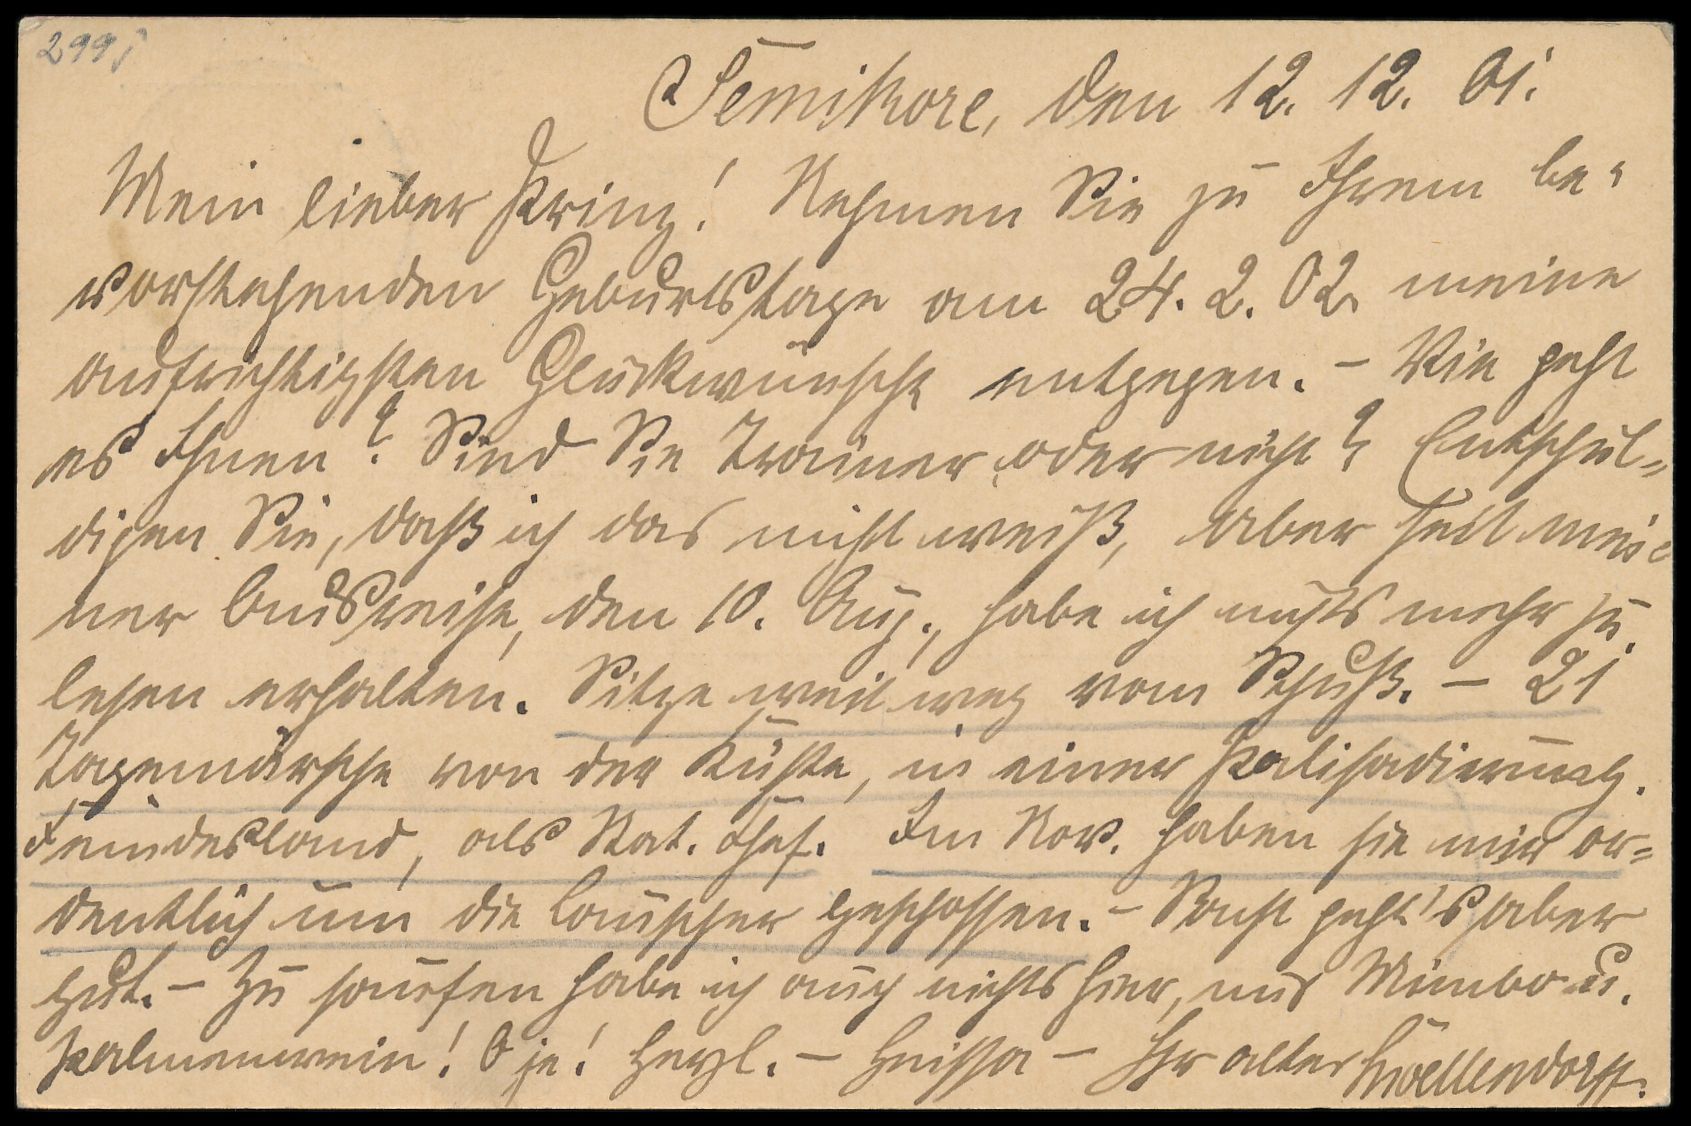 299
Semikore, den 12. 12. 01.
Mein lieber Prinz! Nehmen Sie zu Ihrem be-
vorstehenden Geburtstage am 24. 2. 02. meine
aufrichtigsten Glückwünsche entgegen. - Wie geht
es Ihnen? Sind Sie Trainer oder nicht? Entschul-
digen Sie, daß ich das nicht weiß, aber seit mei-
ner Ausreise, den 10. Aug., habe ich nichts mehr zu
lesen erhalten. Sitze weit weg vom Schuß. - 21
Tagemärsche von der Küste, in einer Palisadierung.
Feindesland, als Stat. Chef. Im Nov. haben sie mir or-
dentlich um die Lauscher geschossen. - Sonst geht's aber
gut. - Zu saufen habe ich auch nichts hier, nur Mimbo u.
Palmenwein! O je! Herzl. - - Ihr alter Möllendorff.